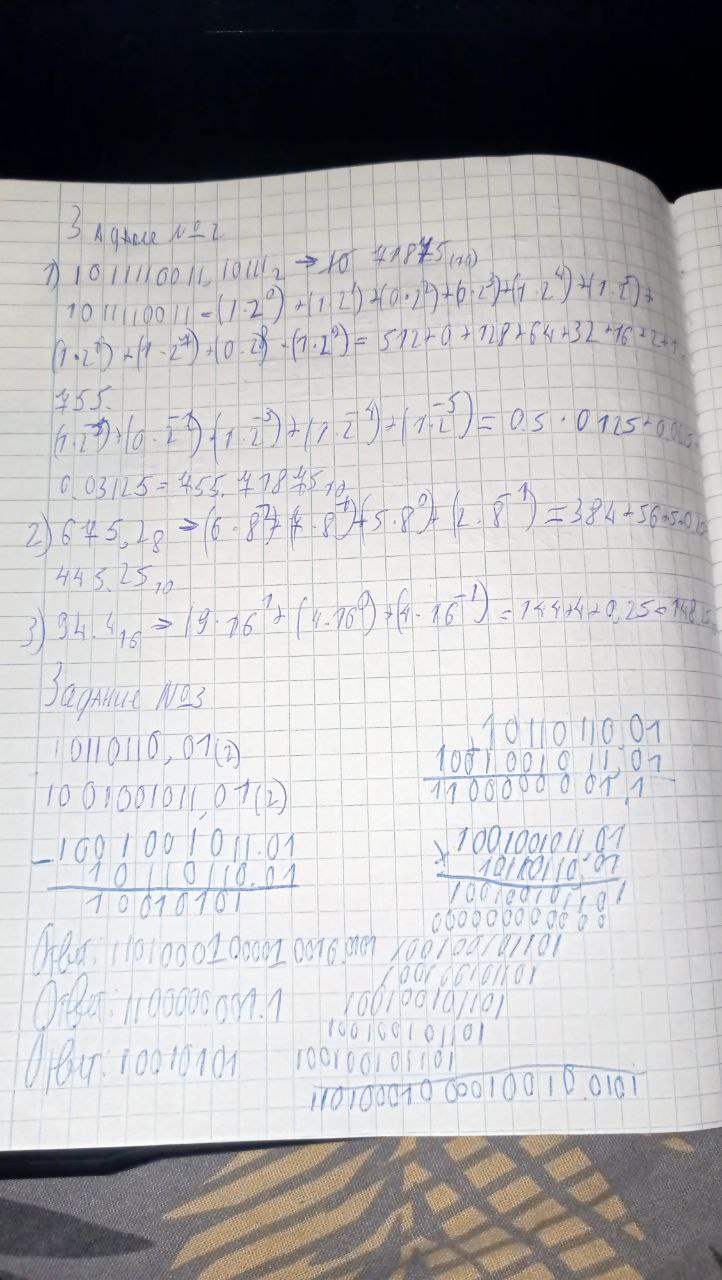 Задание №2
1) 1011110011,10111₂ → 10 71875(10)
1011110011 = (1·2⁰)+(1·2¹)+(0·2²)+(0·2³)+(1·2⁴)+(1·2⁵)+
(1·2⁶)+(1·2⁷)+(0·2⁸)+(1·2⁹) = 512+0+128+64+32+16+2+1=
755.
(1·2⁻¹)+(0·2⁻²)+(1·2⁻³)+(1·2⁻⁴)+(1·2⁻⁵) = 0.5+0.125+0.0625+
0.03125=755.71875₁₀
2) 675,2₈ → (6·8²)+(7·8¹)+(5·8⁰)+(2·8⁻¹)=384+56+5+0.25=
445.25₁₀
3) 94.4₁₆ → (9·16¹+(4·16⁰)+(4·16⁻¹)=144+4+0.25=148.25
Задание №3
10110110,01(2)
1001001011,01(2)
+ 10110110.01
1001001011,01
1100000001,1
- 1001001011.01
10110110.01
110010101
× 1001001011.01
10110110.01
100100101101
000000000000
100100101101
100100101101
100100101101
100100101101
100100101101
11010001000010010.0101
Ответ: 11010001000010010.0101
Ответ: 1100000001.1
Ответ: 10010101